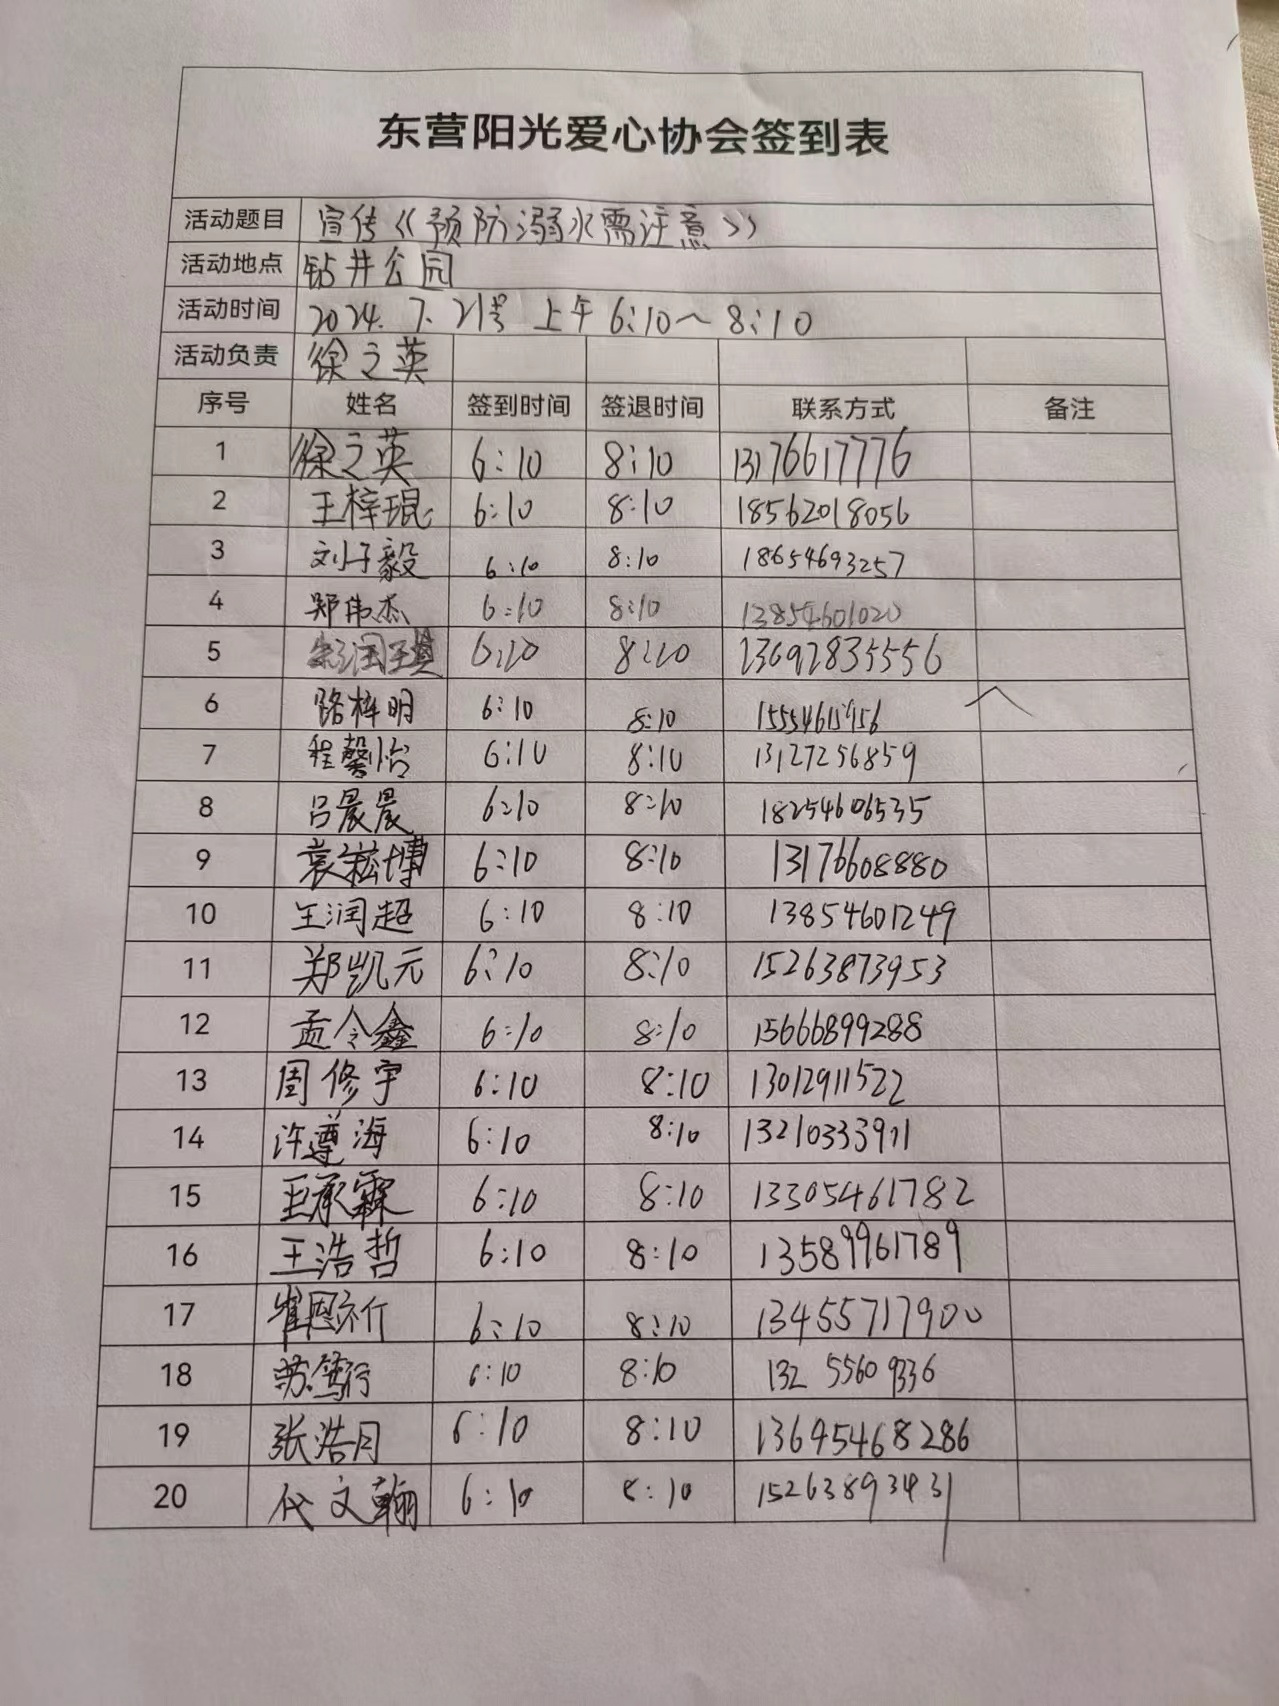 东营阳光爱心协会签到表
活动题目 宣传《预防溺水需注意》
活动地点 钻井公园
活动时间 2024.7.21号 上午6:10~8:10
活动负责 徐之英
序号 姓名 签到时间 签退时间 联系方式 备注
1 徐之英 6:10 8:10 13176617776
2 王梓琨 6:10 8:10 18562018056
3 刘子毅 6:10 8:10 18654693257
4 郑伟杰 6:10 8:10 13854601020
5 6:10 8:10 13692835556
6 路梓明 6:10 8:10
7 程馨怡 6:10 8:10 13127256859
8 吕晨晨 6:10 8:10 18254606535
9 袁崧博 6:10 8:10 13176608880
10 王润超 6:10 8:10 13854601249
11 郑凯元 6:10 8:10 15263873953
12 孟令鑫 6:10 8:10 15666899288
13 周修宇 6:10 8:10 13012911522
14 许尊海 6:10 8:10 13210333911
15 王承霖 6:10 8:10 13305461782
16 王浩哲 6:10 8:10 13589961789
17 崔恩祈 6:10 8:10 13455717900
18 苏笃行 6:10 8:10 132 5560 9336
19 张浩月 6:10 8:10 13695468286
20 代文翰 6:10 8:10 15263893431